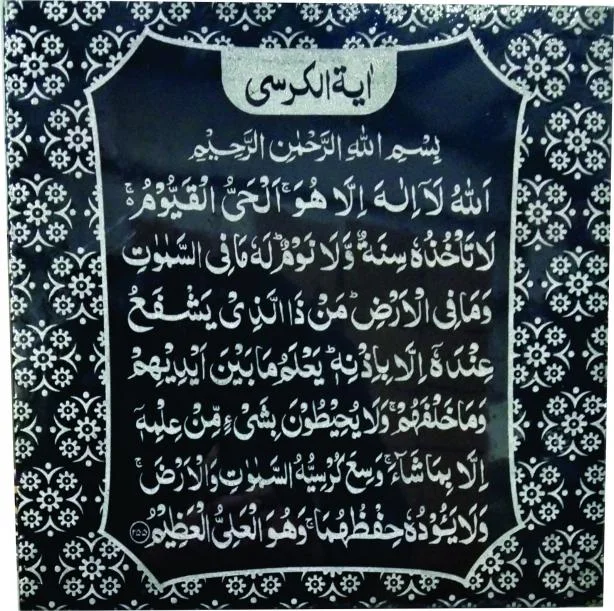 اٰیة الکرسی
بِسْمِ اللهِ الرَّحْمٰنِ الرَّحِیْمِ
اَللهُ لَاۤ اِلٰهَ اِلَّا هُوَ ۚ اَلْحَیُّ الْقَیُّوْمُ ۚ
لَا تَاْخُذُهٗ سِنَةٌ وَّلَا نَوْمٌ ؕ لَهٗ مَا فِی السَّمٰوٰتِ
وَمَا فِی الْاَرْضِ ؕ مَنْ ذَا الَّذِیْ یَشْفَعُ
عِنْدَهٗۤ اِلَّا بِاِذْنِهٖ ؕ یَعْلَمُ مَا بَیْنَ اَیْدِیْهِمْ
وَمَا خَلْفَهُمْ ۚ وَلَا یُحِیْطُوْنَ بِشَیْءٍ مِّنْ عِلْمِهٖۤ
اِلَّا بِمَا شَآءَ ۚ وَسِعَ کُرْسِیُّهُ السَّمٰوٰتِ وَالْاَرْضَ ۚ
وَلَا یَـُٔوْدُهٗ حِفْظُهُمَا ۚ وَهُوَ الْعَلِیُّ الْعَظِیْمُ ۲۵۵